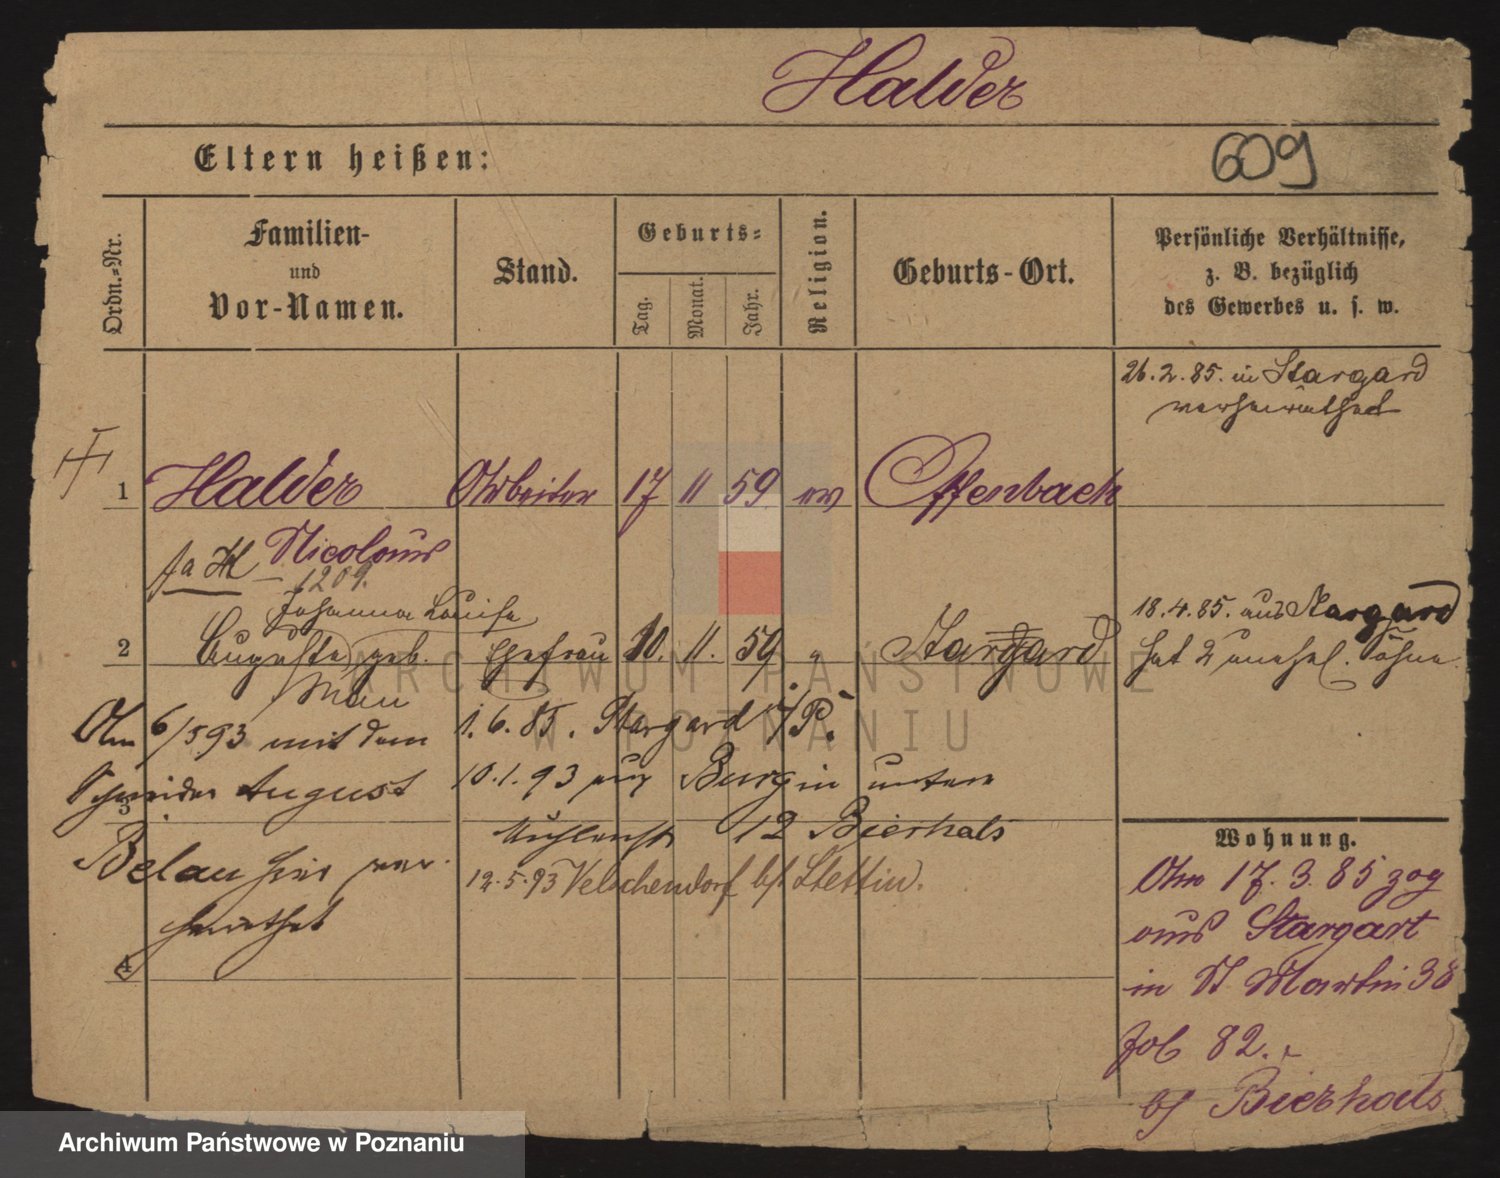 Halder
609
Eltern heißen:
Ordn.-Nr.
Familien-
und
Vor-Namen.
Stand.
Geburts-
Tag.
Monat.
Jahr.
Religion.
Geburts-Ort.
Persönliche Verhältnisse,
z. B. bezüglich
des Gewerbes u. s. w.
26.2.85. in Stargard
verheirathet
1 Halder Arbeiter 17 11 59 ev Offenbach
Nicolaus
1209.
Johanna Louise
2 Auguste geb. Ehefrau 10. 11. 59 " Stargard
18.4.85. aus Stargard
hat 2 unehel. Söhne.
Am 6/5 93 mit dem 1.6.85. Stargard i/P.
Schneider August 10.1.93 aus Burg in untere
3
Mühlenstr 12 Bierhals
Belau hier ver-
heirathet
12.5.93 Velschendorf b/ Stettin.
4
Wohnung.
Am 17.3.85 zog
aus Stargart
in St Martin 38
b/ Bierhals
ARCHIWUM PAŃSTWOWE
W POZNANIU
Archiwum Państwowe w Poznaniu